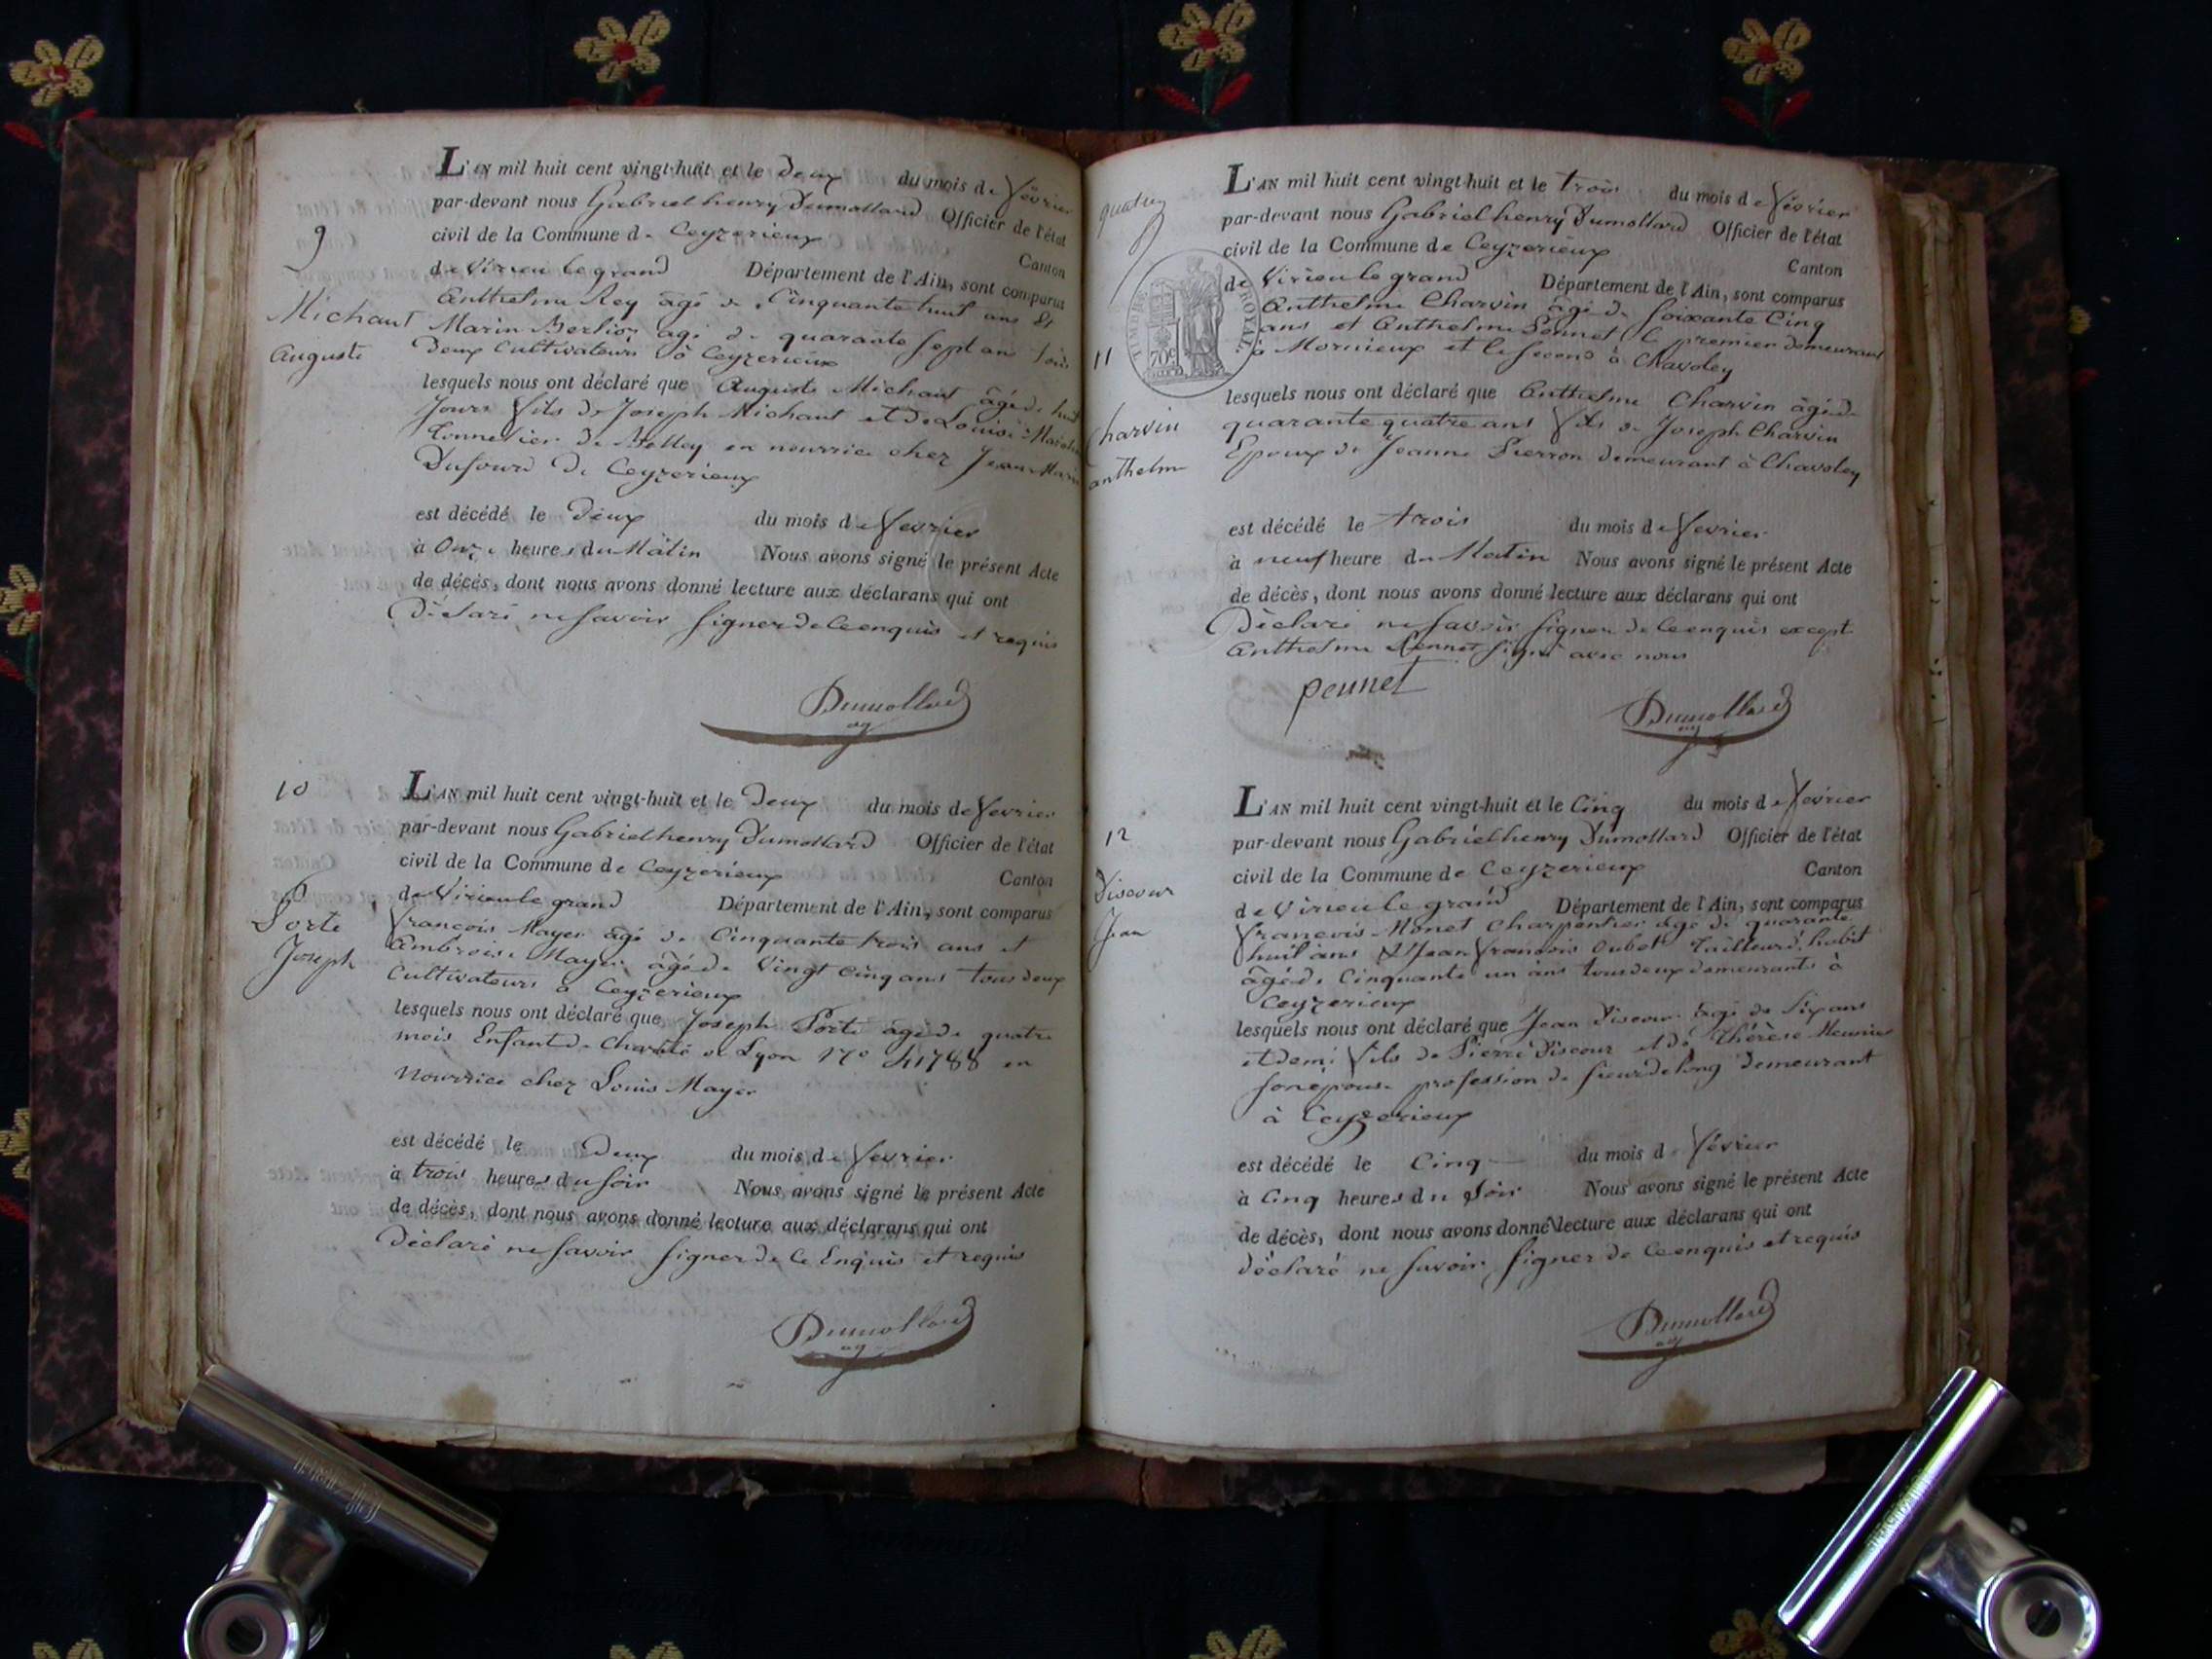 9
Michaut
Auguste
L'AN mil huit cent vingt-huit et le deux du mois de fevrier
par-devant nous Gabriel henry Dumollard Officier de l'état
civil de la Commune de Ceyzerieux Canton
de Virieu le grand Département de l'Ain, sont comparus
Anthelme Rey âgé de Cinquante huit ans et
Marin Berlioz agé de quarante sept ans tous
deux Cultivateurs à Ceyzerieux
lesquels nous ont déclaré que Auguste Michaut âgé de huit
Jours fils de Joseph Michaut et de Louise
Tonnelier de en nourrice chez Jean Marie
Dufourd de Ceyzerieux
est décédé le Deux du mois de fevrier
à Onze heures du Matin Nous avons signé le présent Acte
de décès, dont nous avons donné lecture aux déclarans qui ont
Déclaré ne savoir signer de ce enquis et requis
Dumollard
10
Porte
Joseph
L'AN mil huit cent vingt-huit et le Deux du mois de fevrier
par-devant nous Gabriel henry Dumollard Officier de l'état
civil de la Commune de Ceyzerieux Canton
de Virieu le grand Département de l'Ain, sont comparus
francois Mayer âgé de Cinquante trois ans et
Ambroise Mayer âgé de Vingt cinq ans tous deux
Cultivateurs à Ceyzerieux
lesquels nous ont déclaré que Joseph Porte âgé de quatre
mois Enfant de Charité de Lyon No 41788 en
Nourrice chez Louis Mayer
est décédé le Deux du mois de fevrier
à trois heures du soir Nous avons signé le présent Acte
de décès, dont nous avons donné lecture aux déclarans qui ont
Déclaré ne savoir signer de ce Enquis et requis
Dumollard
TIMBRE ROYAL
70c
11
Charvin
anthelme
L'AN mil huit cent vingt-huit et le trois du mois de février
par-devant nous Gabriel henry Dumollard Officier de l'état
civil de la Commune de Ceyzerieux Canton
de Virieu le grand Département de l'Ain, sont comparus
Anthelme Charvin âgé de soixante Cinq
ans et Anthelme Pennet le premier demeurant
à Mornieux et le second à Chavoley
lesquels nous ont déclaré que Anthelme Charvin âgé de
quarante quatre ans fils de Joseph Charvin
Epoux de Jeanne Pierron demeurant à Chavoley
est décédé le trois du mois de fevrier
à neuf heure du Matin Nous avons signé le présent Acte
de décès, dont nous avons donné lecture aux déclarans qui ont
Déclaré ne savoir signer de ce enquis except
Anthelme Pennet signé avec nous
pennet
Dumollard
12
Discour
Jean
L'AN mil huit cent vingt-huit et le Cinq du mois de fevrier
par-devant nous Gabriel henry Dumollard Officier de l'état
civil de la Commune de Ceyzerieux Canton
de Virieu le grand Département de l'Ain, sont comparus
francois Monet Charpentier âgé de quarante
huit ans et Jean francois Oubet Tailleur d'habit
âgé de Cinquante un ans tous deux demeurants à
Ceyzerieux
lesquels nous ont déclaré que Jean Discour âgé de Six ans
et demi fils de Pierre Discour et de Thérèse Meunier
son épouse profession de sieur de long demeurant
à Ceyzerieux
est décédé le Cinq du mois de février
à Cinq heures du Soir Nous avons signé le présent Acte
de décès, dont nous avons donné lecture aux déclarans qui ont
déclaré ne savoir signer de ce enquis et requis
Dumollard